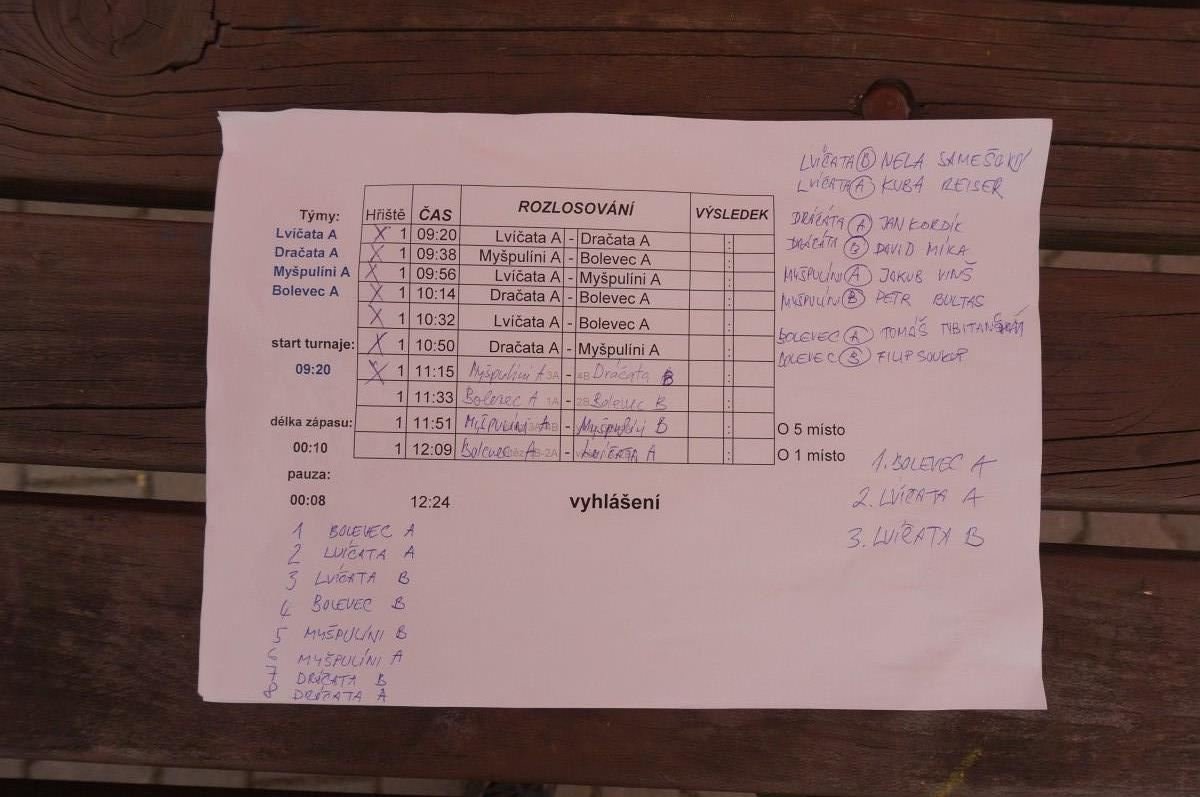 LVÍČATA B NELA
LVÍČATA A KUBA REISER
DRÁČATA A JAN KORDÍK
DRÁČATA B DAVID MÍKA
MYŠPULÍNI A JAKUB VINŠ
MYŠPULÍNI B PETR BULTAS
BOLEVEC A TOMÁŠ
BOLEVEC B FILIP SOUKUP
Týmy:
Lvíčata A
Dračata A
Myšpulíni A
Bolevec A
start turnaje:
09:20
délka zápasu:
00:10
pauza:
00:08
Hřiště ČAS ROZLOSOVÁNÍ VÝSLEDEK
X 1 09:20 Lvíčata A - Dračata A :
X 1 09:38 Myšpulíni A - Bolevec A :
X 1 09:56 Lvíčata A - Myšpulíni A :
X 1 10:14 Dračata A - Bolevec A :
X 1 10:32 Lvíčata A - Bolevec A :
X 1 10:50 Dračata A - Myšpulíni A :
X 1 11:15 Myšpulíni A 3A - 4B Dráčata B :
1 11:33 Bolevec A 1A - 2B Bolevec B :
1 11:51 Myšpulíni A - Myšpulíni B : O 5 místo
1 12:09 Bolevec A - LVÍČATA A : O 1 místo
12:24 vyhlášení
1. BOLEVEC A
2. LVÍČATA A
3. LVÍČATA B
1 BOLEVEC A
2 LVÍČATA A
3 LVÍČATA B
4 BOLEVEC B
5 MYŠPULÍNI B
6 MYŠPULÍNI A
7 DRÁČATA B
8 DRÁČATA A